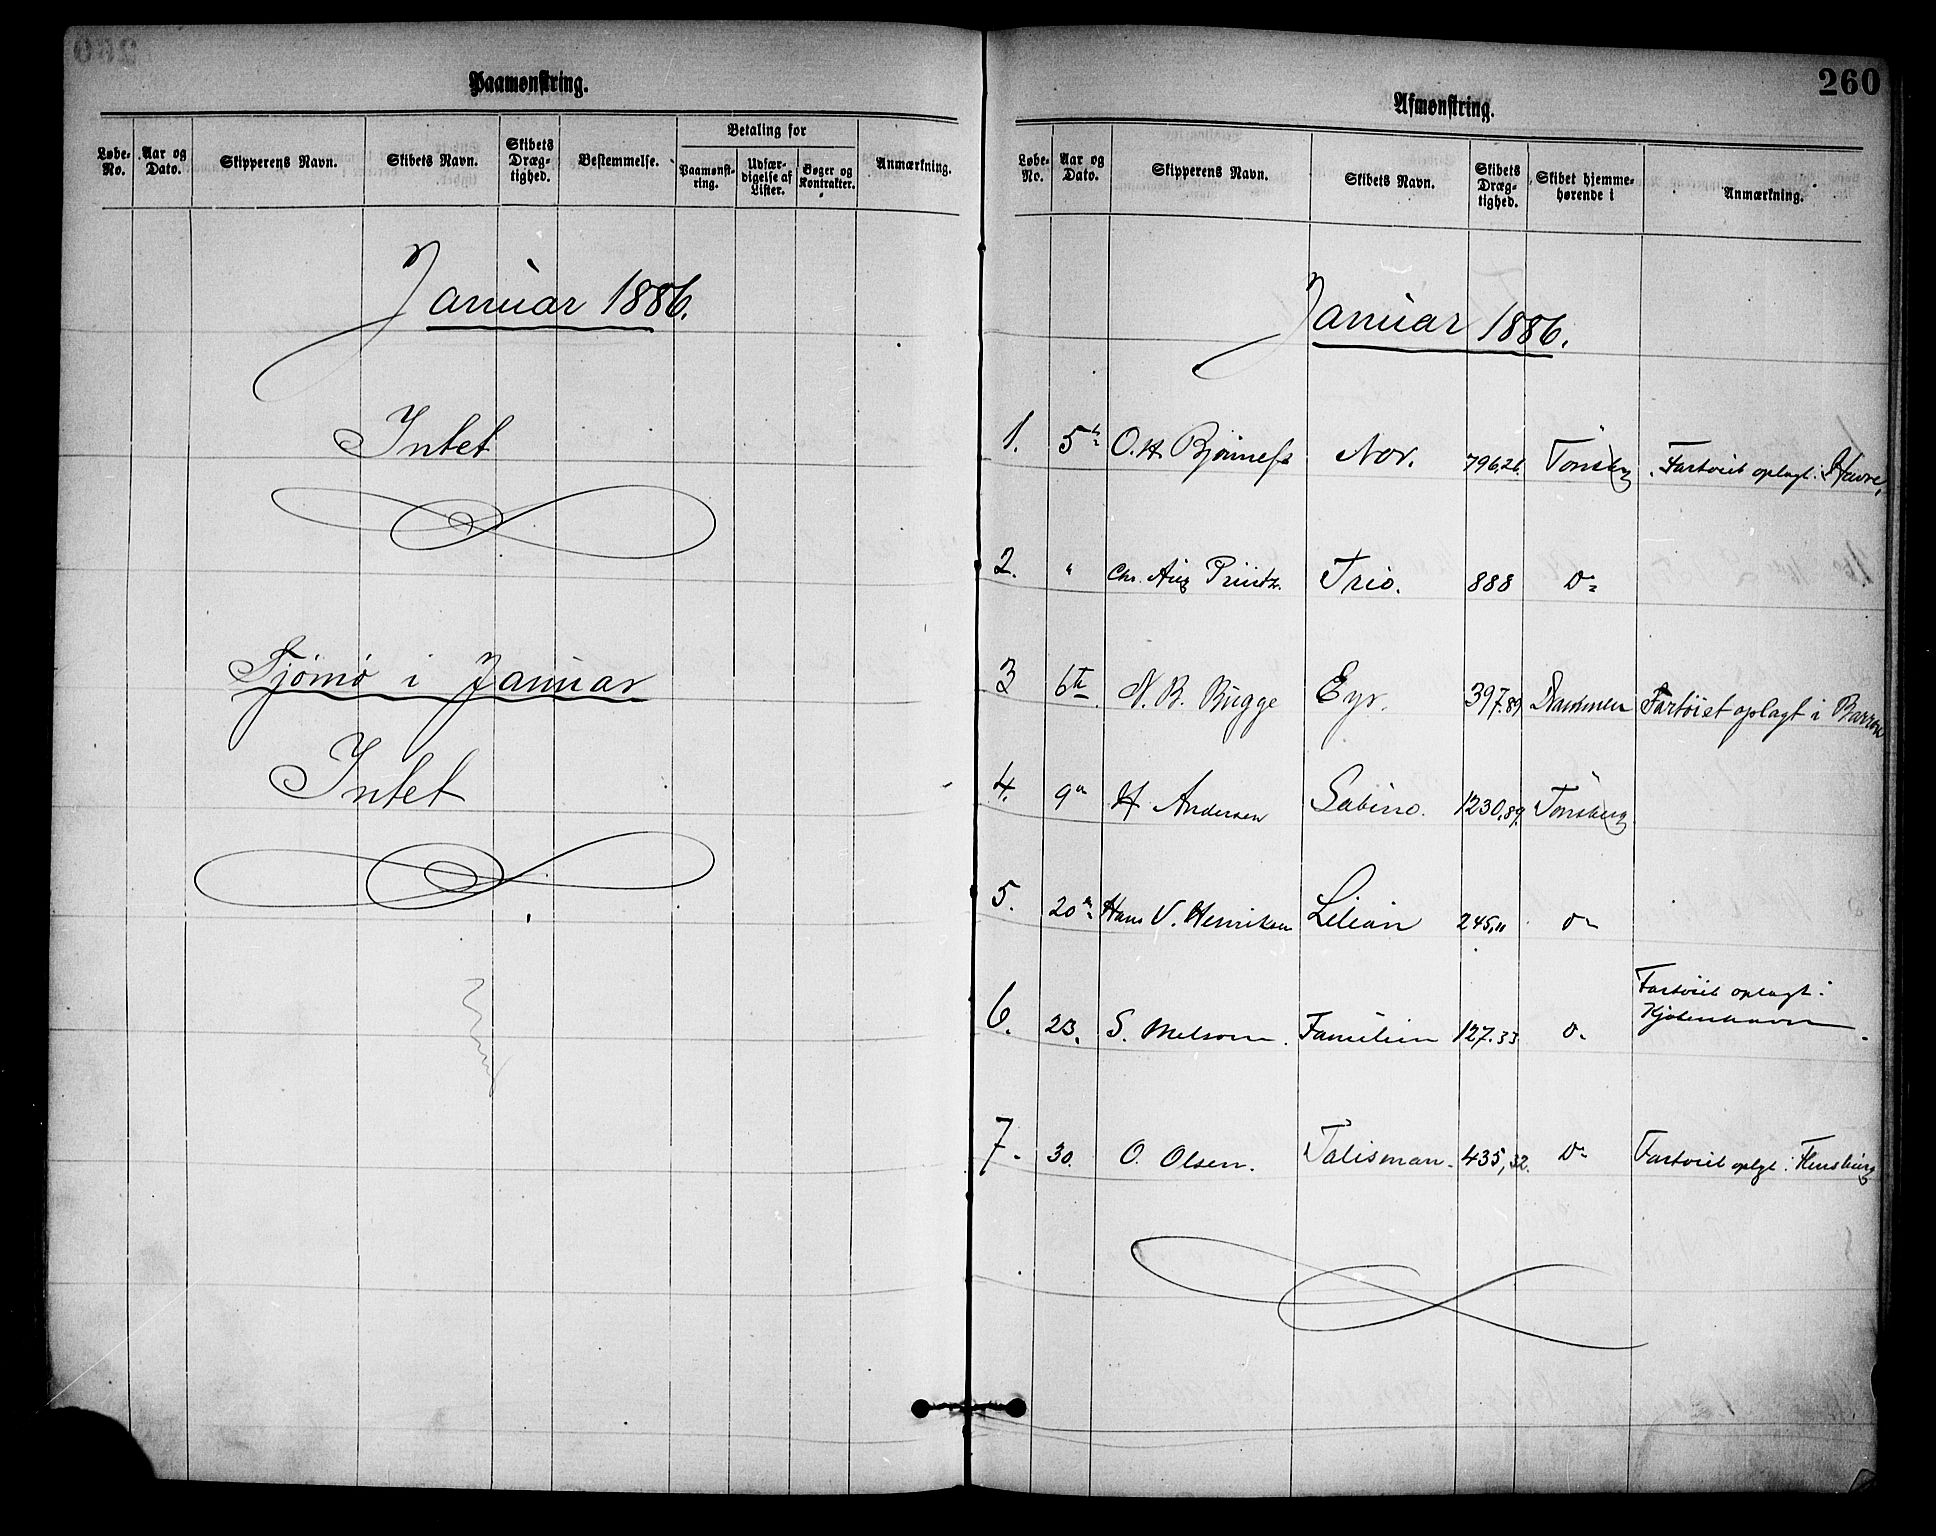 Paamønstring.
Løbe-No. Aar og Dato. Skipperens Navn. Skibets Navn. Skibets Dræg-tighed. Bestemmelse. Betaling for Paamønst-ring. Udfær-digelse af Lister. Bøger og Kontrakter. Anmærkning.
Januar 1886.
Intet
Tjømø i Januar
Intet
260
Afmønstring.
Løbe-No. Aar og Dato. Skipperens Navn. Skibets Navn. Skibets Dræg-tighed. Skibet hjemme-hørende i Anmærkning.
Januar 1886.
1. 5te O. H. Bjønness Nor. 796,26 Tønsberg Fartøiet oplagt i Havre,
2. " Chr. Aug Printz. Trio. 888 Do
3 6te N. B. Bugge Eyr. 397.89 Drammen Fartøiet oplagt i Barrow
4. 9de H Andersen Sabino. 1230,89. Tønsberg
5. 20de Hans V. Henriksen Lilian 245,11 Do
6. 23. S. Melsom. Familien 127.33 Do Fartøiet oplagt i Kjøbenhavn
7. 30. O. Olsen. Talisman. 435,32. Do Fartøiet oplgt i Flensburg